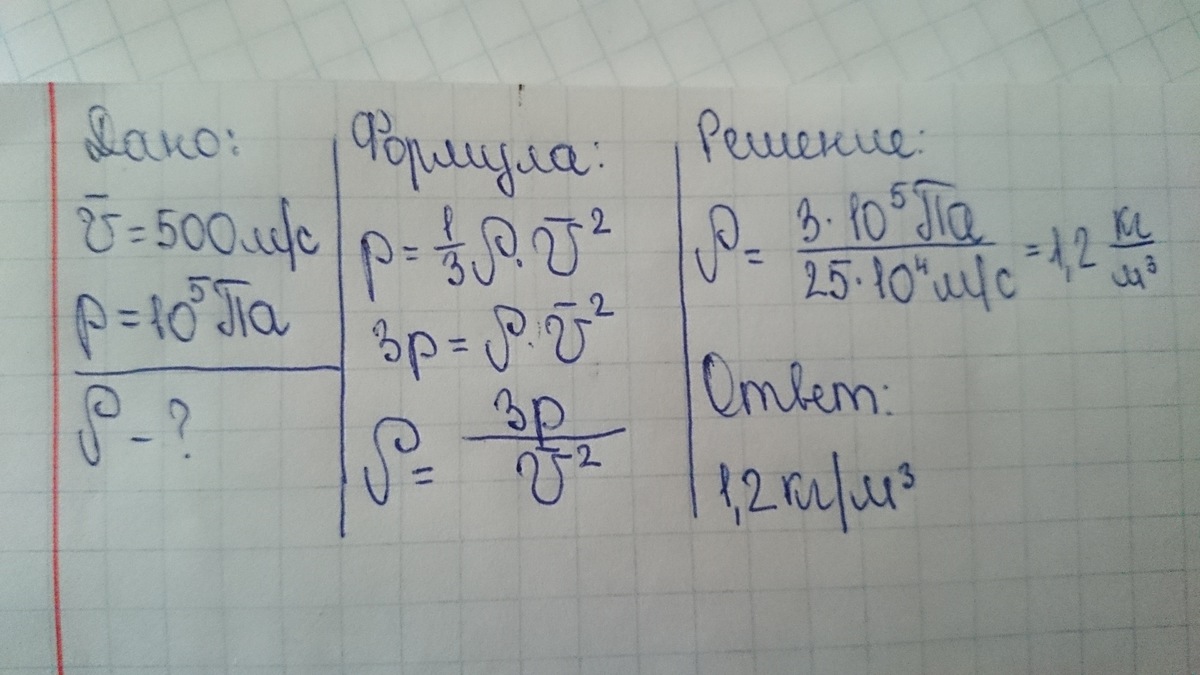 Дано:
v̄ = 500 м/с
p = 10⁵ Па
ρ - ?
Формула:
p = 1/3 ρ · v̄²
3p = ρ · v̄²
ρ = 3p / v̄²
Решение:
ρ = 3 · 10⁵ Па / 25 · 10⁴ м/с = 1,2 кг/м³
Ответ:
1,2 кг/м³